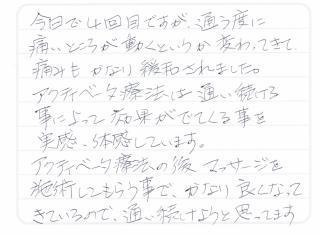 今日で4回目ですが、通う度に
痛いところが動くというか変わってきて
痛みもかなり緩和されました。
アクティベータ療法は通い続ける
事によって効果がでてくる事を
実感、体感しています。
アクティベータ療法の後マッサージを
施術してもらう事で、かなり良くなって
きているので、通い続けようと思ってます